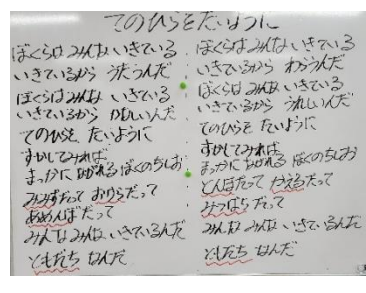 てのひらをたいように
ぼくらはみんな いきている
いきているから うたうんだ
ぼくらはみんな いきている
いきているから かなしいんだ
てのひらを たいように
すかしてみれば
まっかに ながれる ぼくのちしお
みみずだって おけらだって
あめんぼだって
みんな みんな いきているんだ
ともだち なんだ
ぼくらは みんな いきている
いきているから わらうんだ
ぼくらは みんな いきている
いきているから うれしいんだ
てのひらを たいように
すかしてみれば
まっかに ながれる ぼくのちしお
とんぼだって かえるだって
みつばちだって
みんな みんな いきているんだ
ともだち なんだ